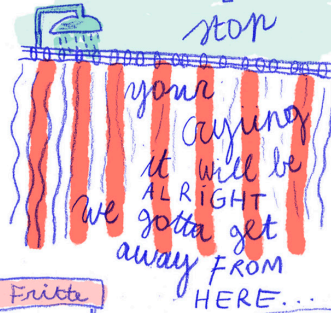 stop
your
crying
it will be
ALRIGHT
we gotta get
away FROM
HERE...
Fritte